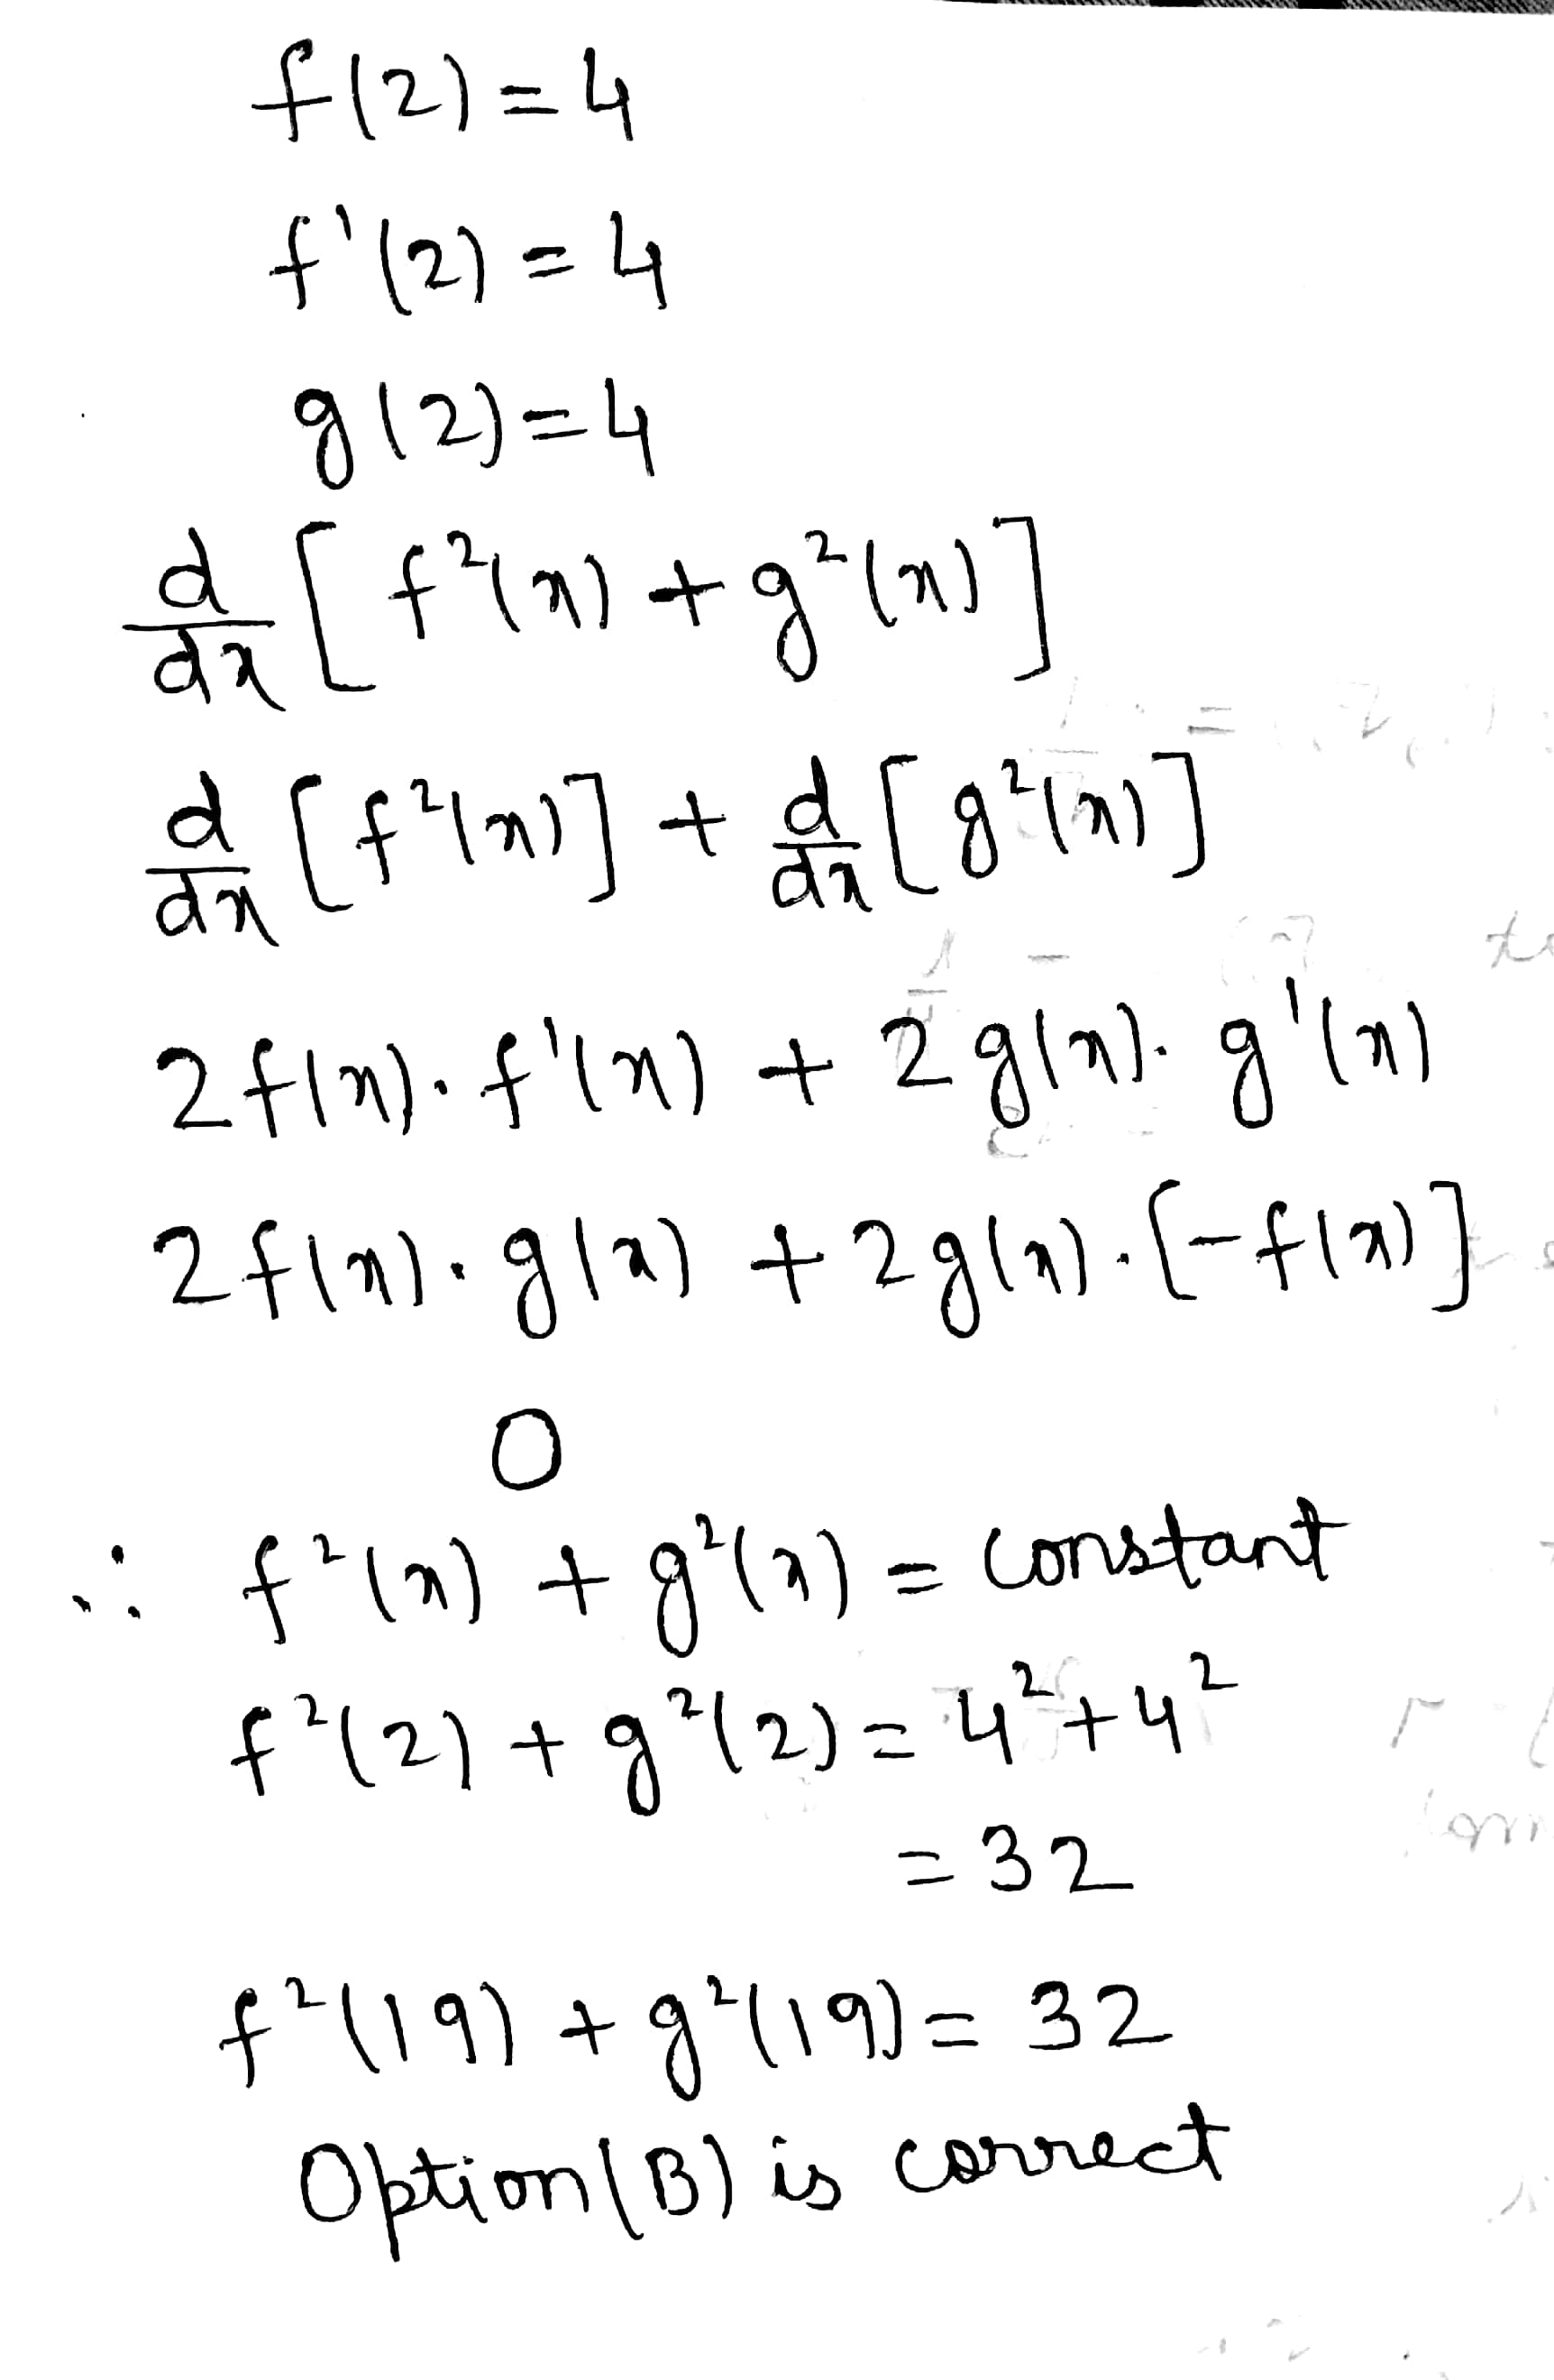 f(2) = 4
f'(2) = 4
g(2) = 4
d/dx [f²(x) + g²(x)]
d/dx [f²(x)] + d/dx [g²(x)]
2f(x). f'(x) + 2g(x). g'(x)
2f(x). g(x) + 2g(x).[-f(x)]
0
∴ f²(x) + g²(x) = constant
f²(2) + g²(2) = 4² + 4²
= 32
f²(19) + g²(19) = 32
Option(B) is correct